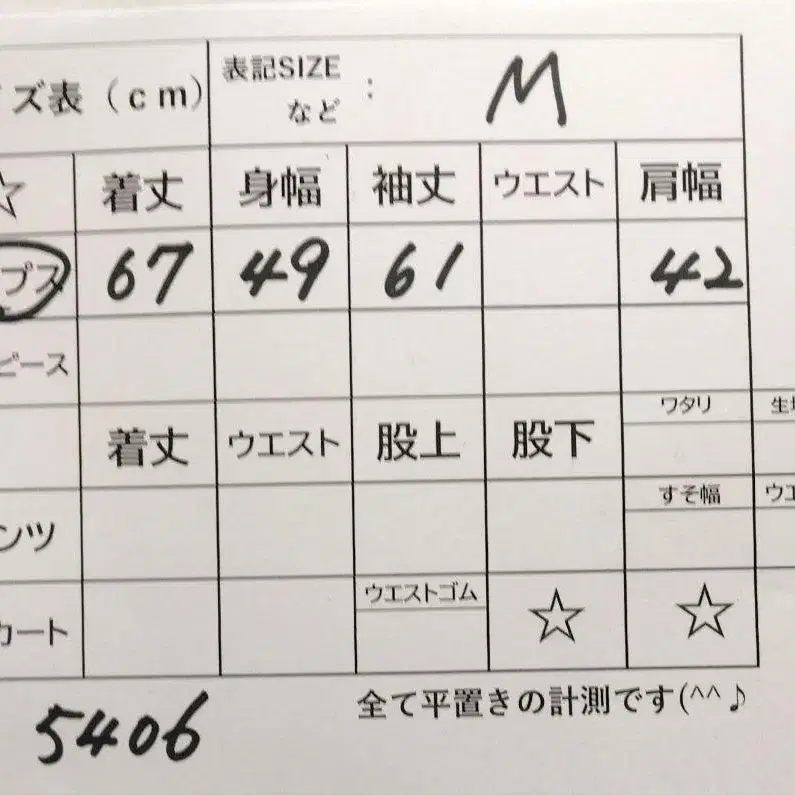 ズ表(cm) 表記SIZE など : M
☆ 着丈 身幅 袖丈 ウエスト 肩幅
プス 67 49 61 42
ピース
ワタリ
着丈 ウエスト 股上 股下
すそ幅 ウエ
ンツ
ウエストゴム
カート ☆ ☆
全て平置きの計測です(^^♪
5406